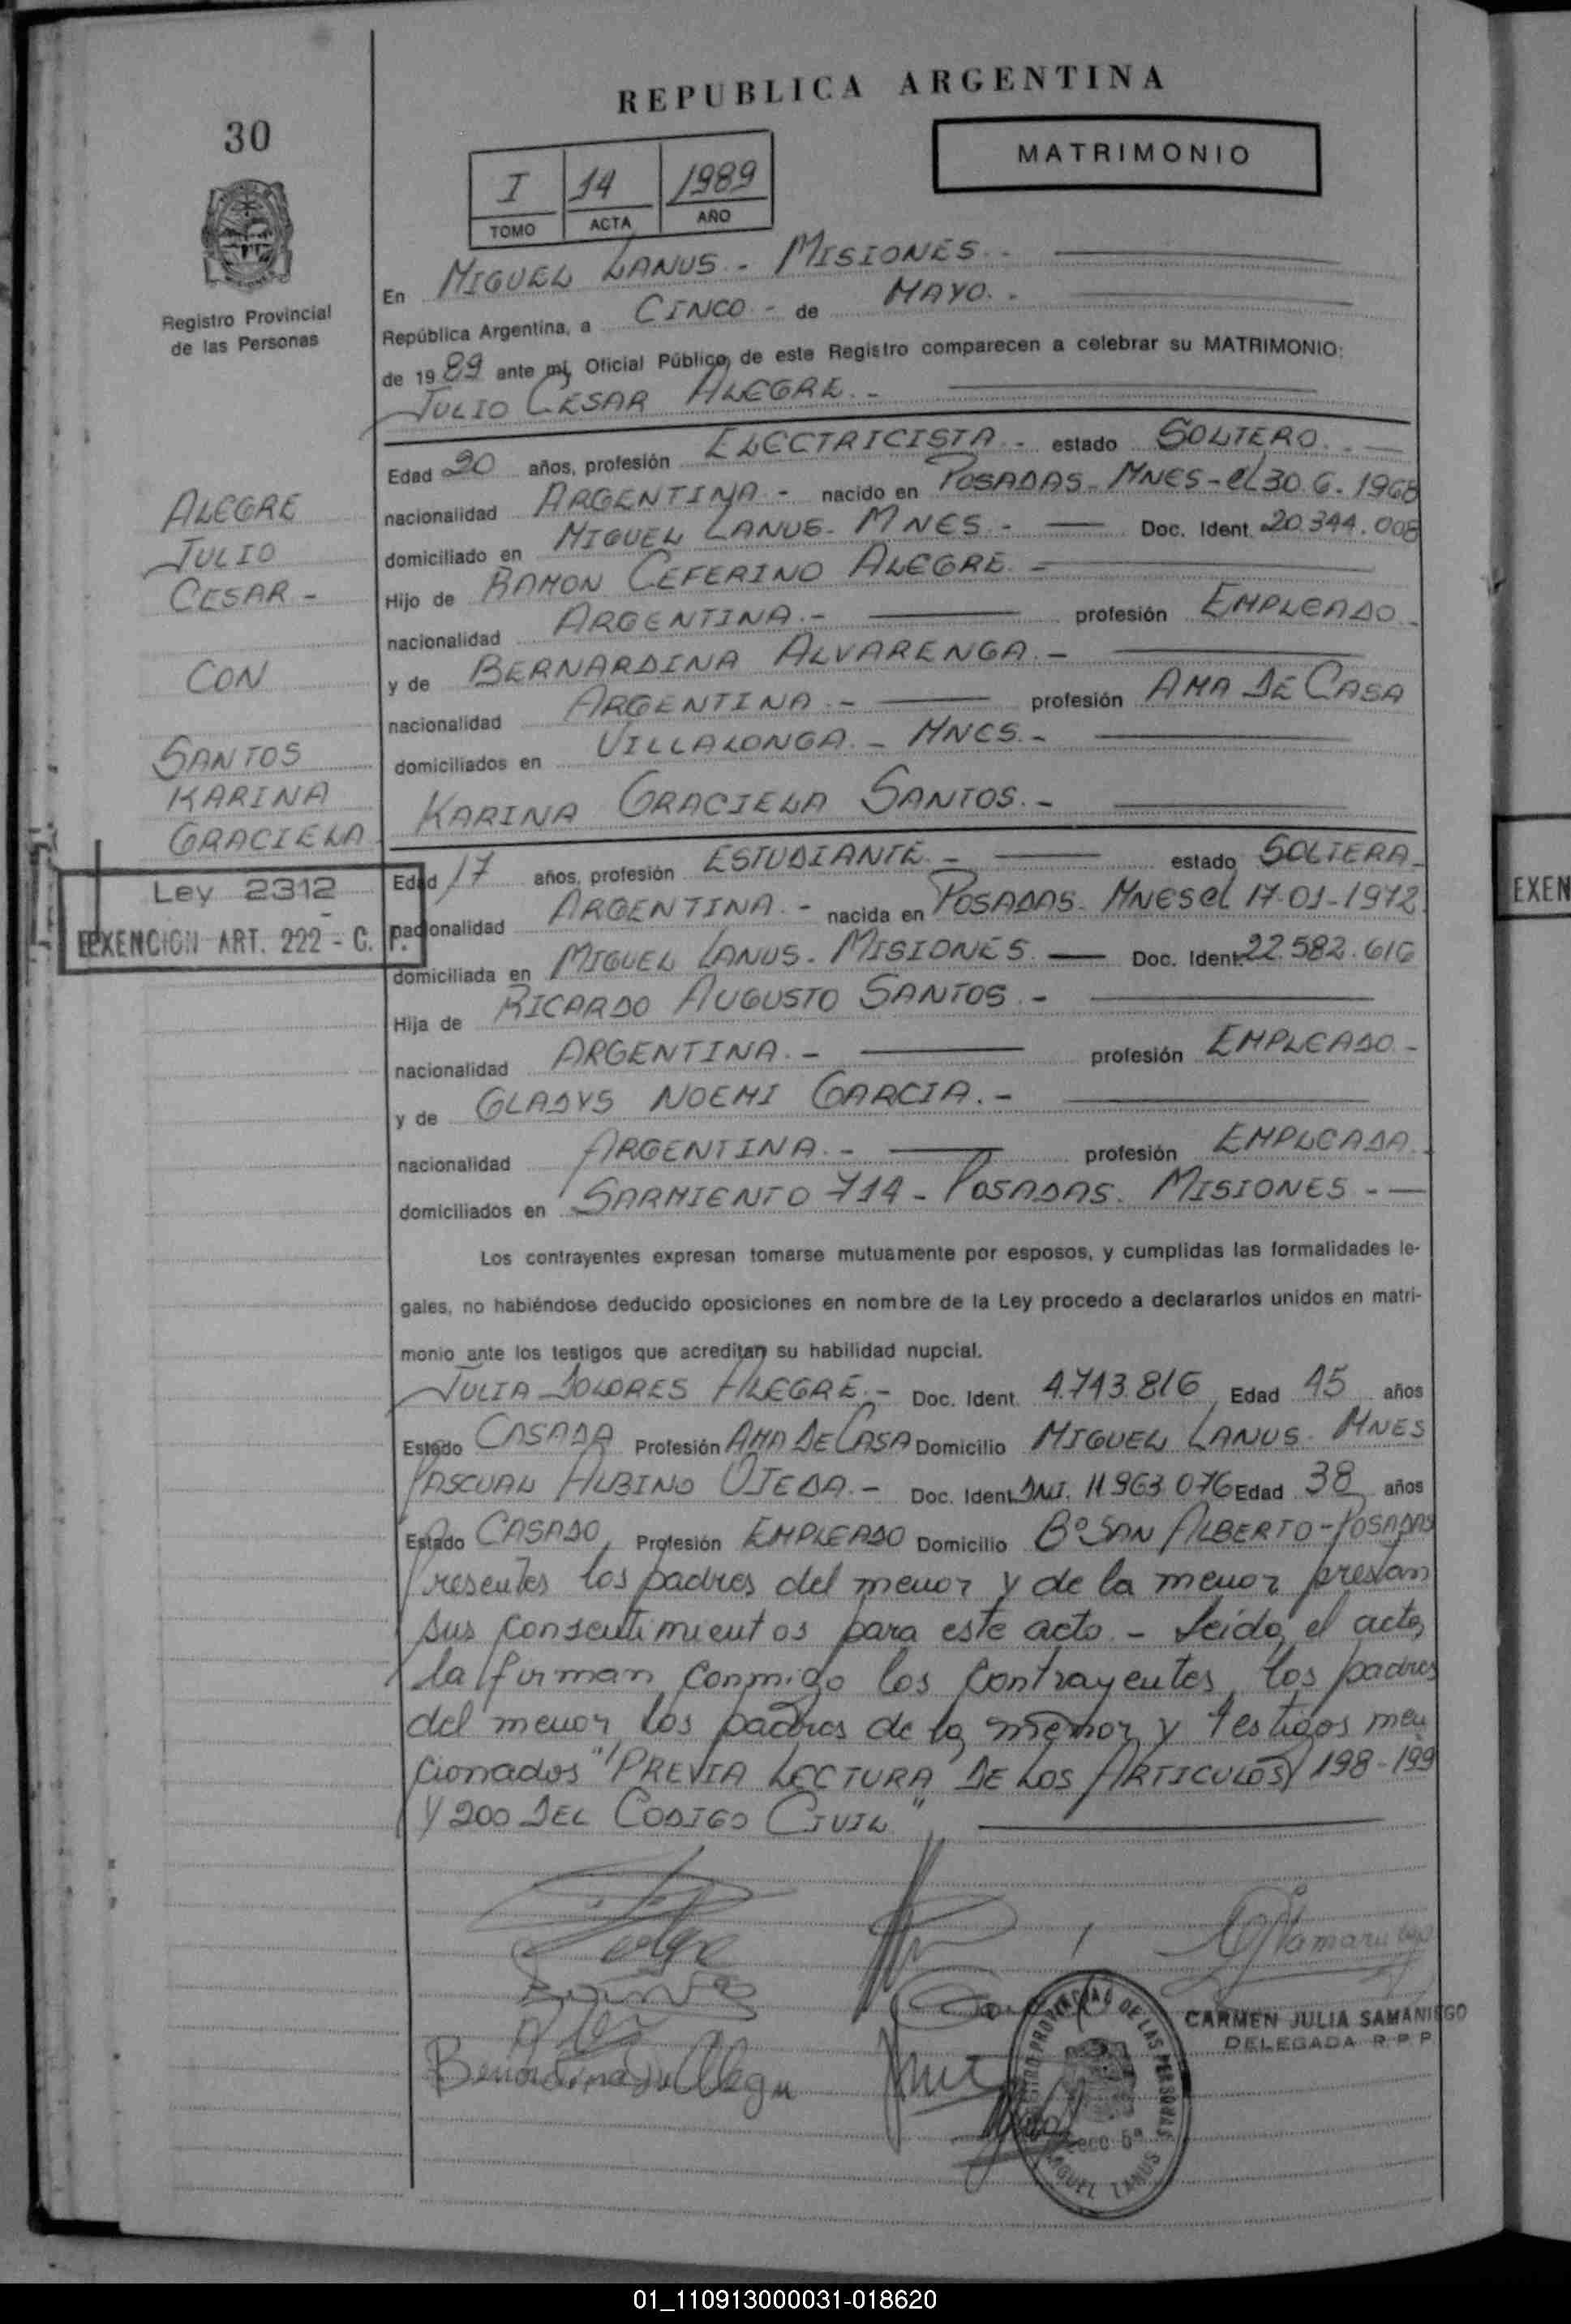 REPUBLICA ARGENTINA
30
MATRIMONIO
I 14 1989
TOMO ACTA AÑO
Registro Provincial
de las Personas
En MIGUEL LANUS - MISIONES.-
República Argentina, a CINCO - de MAYO.-
de 1989 ante mí, Oficial Público, de este Registro comparecen a celebrar su MATRIMONIO:
JULIO CESAR ALEGRE.-
Edad 20 años, profesión ELECTRICISTA.- estado SOLTERO.-
nacionalidad ARGENTINA.- nacido en POSADAS - MNES - el 30.6.1968
domiciliado en MIGUEL LANUS - MNES.- Doc. Ident. 20.344.008
Hijo de RAMON CEFERINO ALEGRE.-
nacionalidad ARGENTINA.- profesión EMPLEADO.-
y de BERNARDINA ALVARENGA.-
nacionalidad ARGENTINA.- profesión AMA DE CASA
domiciliados en VILLALONGA.- MNES.-
KARINA GRACIELA SANTOS.-
ALEGRE
JULIO
CESAR -
CON
SANTOS
KARINA
GRACIELA
Ley 2312
EXENCION ART. 222 - C. P.
Edad 17 años, profesión ESTUDIANTE.- estado SOLTERA-
nacionalidad ARGENTINA.- nacida en POSADAS - MNES el 17-01-1972
domiciliada en MIGUEL LANUS - MISIONES. Doc. Ident. 22.582.616
Hija de RICARDO AUGUSTO SANTOS.-
nacionalidad ARGENTINA.- profesión EMPLEADO.-
y de GLADYS NOEMI GARCIA.-
nacionalidad ARGENTINA.- profesión EMPLEADA.
domiciliados en SARMIENTO 714 - POSADAS. MISIONES.-
Los contrayentes expresan tomarse mutuamente por esposos, y cumplidas las formalidades le-
gales, no habiéndose deducido oposiciones en nombre de la Ley procedo a declararlos unidos en matri-
monio ante los testigos que acreditan su habilidad nupcial.
JULIA DOLORES ALEGRE.- Doc. Ident. 4.743.816 Edad 45 años
Estado CASADA Profesión AMA DE CASA Domicilio MIGUEL LANUS. MNES
PASCUAL ALBINO OJEDA.- Doc. Ident. DNI. 11.963.076 Edad 38 años
Estado CASADO Profesión EMPLEADO Domicilio Bº SAN ALBERTO - POSADAS
Presentes los padres del menor y de la menor prestan
sus consentimientos para este acto.- Leida el acta,
la firman conmigo los contrayentes, los padres
del menor, los padres de la menor y testigos men
cionados "PREVIA LECTURA DE LOS ARTICULOS 198-199
Y 200 DEL CODIGO CIVIL"
Bernardina de Alegre
CARMEN JULIA SAMANIEGO
DELEGADA R P P
REGISTRO PROVINCIAL DE LAS PERSONAS
Secc 5ª
MIGUEL LANUS
EXEN
01_110913000031-018620